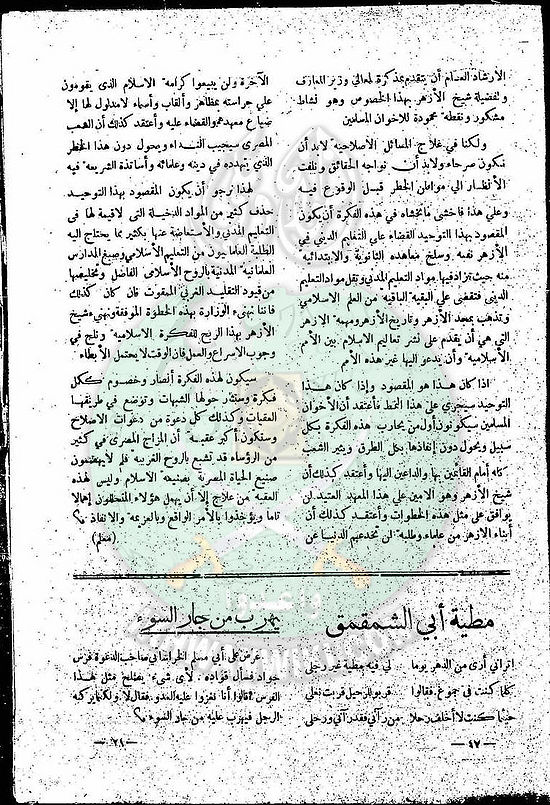 الارشاد العام أن يتقدم بمذكرة لمعالي وزير المعارف
ولفضيلة شيخ الأزهر بهذا الخصوص وهو نشاط
مشكور ونقطة محمودة للاخوان المسلمين
ولكنا في علاج المسائل الاصلاحية لابد أن
نكون صرحاء ولابد أن نواجه الحقائق ونلفت
الأنظار الى مواطن الخطر قبل الوقوع فيه
وعلى هذا فأخشى ما نخشاه في هذه الفكرة أن يكون
المقصود بهذا التوحيد القضاء على التعليم الديني في
الأزهر نفسه وسلخ معاهده الثانوية والابتدائية
منه حيث تزاد فيها مواد التعليم المدني وتقل مواد التعليم
الديني فتقضى على البقية الباقية من العلم الاسلامي
وتذهب بمجد الأزهر وتاريخ الأزهر ومهمة الازهر
التي هي أن يقدم على نشر تعاليم الاسلام بين الأمم
الأسلامية وأن يدعو اليها غير هذه الأمم
اذا كان هذا هو المقصود وإذا كان هذا
التوحيد سيجري على هذا النمط فأعتقد أن الأخوان
المسلمين سيكونون أول من يحارب هذه الفكرة بكل
سبيل ويحول دون إنفاذها بكل الطرق ويثير الشعب
كله أمام القائمين بها والداعين اليها وأعتقد كذلك أن
شيخ الأزهر وهو الامين على هذا المعهد العتيد لن
يوافق على مثل هذه الخطوات وأعتقد كذلك أن
أبناء الازهر من علماء وطلبة لن تخدعهم الدنيا عن
الآخرة ولن يبيعوا كرامة الاسلام الذى يقومون
على حراسته بمظاهر وألقاب وأسماء لا مدلول لها إلا
ضياع معهدهم والقضاء عليه وأعتقد كذلك أن الشعب
المصرى سيجيب النداء ويحول دون هذا الخطر
الذي يتهدده في دينه وعلمائه وأساتذة الشريعة فيه
لهذا نرجو أن يكون المقصود بهذا التوحيد
حذف كثير من المواد الدخيلة التى لا قيمة لها فى
التعليم المدني والأستعاضة عنها بكثير مما يحتاج اليه
الطلبة العلمانيون من التعليم الأسلامي وصبغ المدارس
العلمانية المدنية بالروح الأسلامى الفاضل وتخليصها
من قيود التقليد الغربي الممقوت فان كان كذلك
فاننا نهنىء الوزارة بهذه الخطوة الموفقة ونهنىء شيخ
الأزهر بهذا الربح للفكرة الاسلامية ونلح في
وجوب الاسراع والعمل فان الوقت لا يحتمل الأبطاء
سيكون لهذه الفكرة أنصار وخصوم ككل
فكرة وستثار حولها الشبهات وتوضع في طريقها
العقبات وكذلك كل دعوة من دعوات الاصلاح
وستكون أكبر عقبة أن المزاج المصرى في كثير
من الرؤساء قد تشبع بالروح الغربية فلم لا يهضمون
صبغ الحياة المصرية بصبغة الاسلام وليس لهذه
العقبة من علاج إلا أن يهمل هؤلاء المتحللون إهمالا
تاما ويؤخذوا بالأمر الواقع وبالعزيمة والانفاذ ؟
(معلم)
مطية أبي الشمقمق
اتراني أرى من الدهر يوما لي فيه مطية غير رجلي
كلما كنت في جموع فقالوا قربوا للرحيل قربت نعلي
حيثما كنت لا أخلف رحلا من رآني فقد رآني ورحلي
— ٤٧ —
يهرب من جار السوء
عرض على أبي مسلم الخراساني صاحب الدعوة فرس
جواد فسأل قواده ، لأى شىء يصلح مثل هذا
الفرس فقالوا أنا نغزوا عليه العدو . فقال لا ولكن يركبه
الرجل فيهرب عليه من جار السوء ؟
— ٢١ —
واعدوا